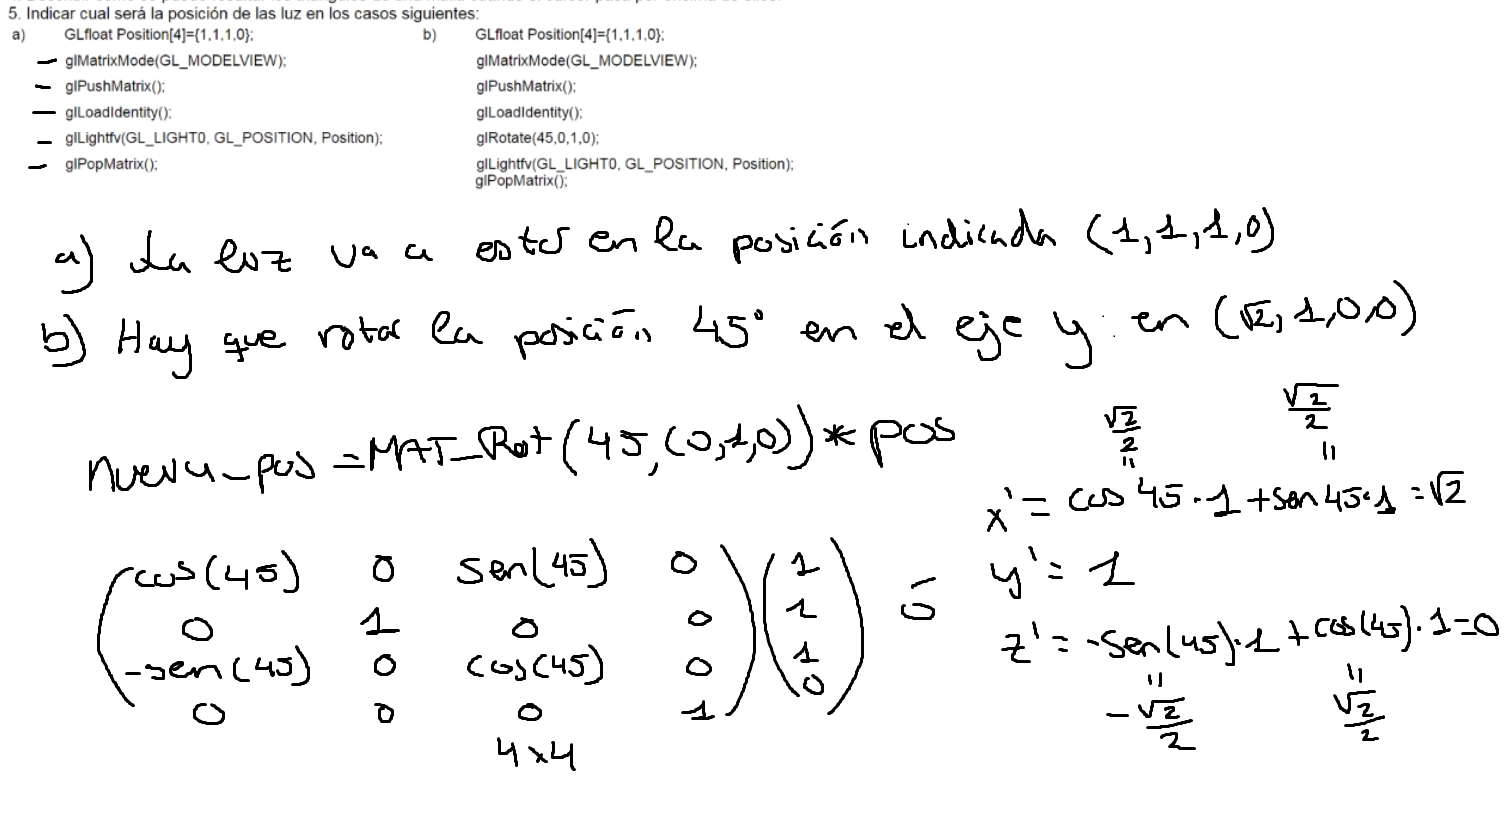 5. Indicar cual será la posición de las luz en los casos siguientes:
a) GLfloat Position[4]={1,1,1,0};
glMatrixMode(GL_MODELVIEW);
glPushMatrix();
glLoadIdentity();
glLightfv(GL_LIGHT0, GL_POSITION, Position);
glPopMatrix();
b) GLfloat Position[4]={1,1,1,0};
glMatrixMode(GL_MODELVIEW);
glPushMatrix();
glLoadIdentity();
glRotate(45,0,1,0);
glLightfv(GL_LIGHT0, GL_POSITION, Position);
glPopMatrix();
a) La luz va a estar en la posición indicada (1,1,1,0)
b) Hay que rotar la posición 45° en el eje y. en (√2, 1,0,0)
nueva_pos = MAT_Rot(45,(0,1,0)) * pos
cos(45) 0 sen(45) 0 1
0 1 0 0 1
-sen(45) 0 cos(45) 0 1
0 0 0 1 0
4x4
ó
√2/2 √2/2
= =
x' = cos 45·1 + sen 45·1 = √2
y' = 1
z' = -sen(45)·1 + cos(45)·1 = 0
= =
-√2/2 √2/2